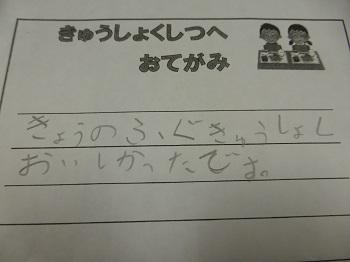 きゅうしょくしつへ
おてがみ
きょうのふぐきゅうしょく
おいしかったです。